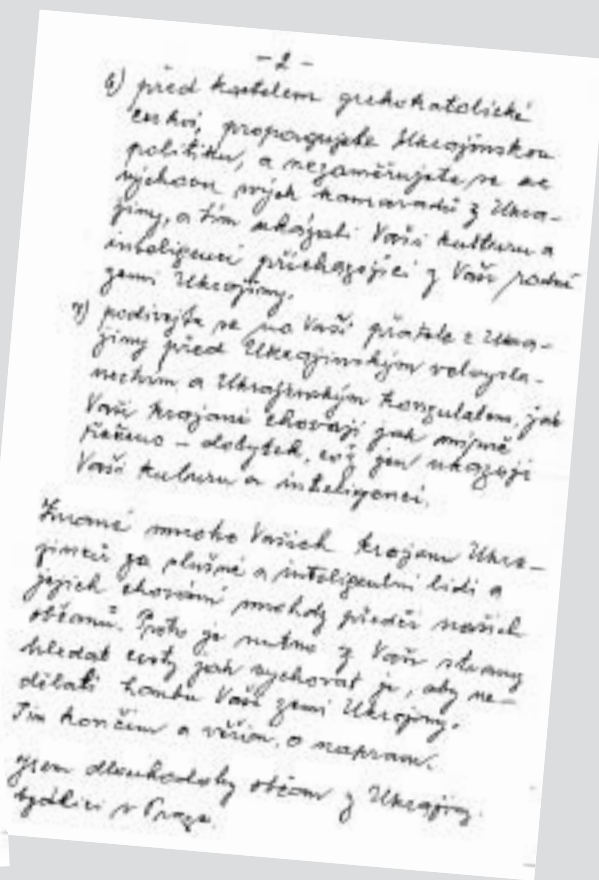 - 2 -
6) před kostelem grekokatolické
církvi, propagujete Ukrajinskou
politiku, a nezaměřujete se na
výchovu svých kamarádů z Ukra-
jiny, a tím ukázali Vaši kulturu a
inteligenci přicházející z Vaší rodné
zemi Ukrajiny.
7) podívejte se na Vaší přátele z Ukra-
jiny před Ukrajinským velvysla-
nectvím a Ukrajinským konzulatem, jak
Vaši krajané chovají jak mírně
řečeno - dobytek, což jen ukazuje
Vaši kulturu a inteligenci.
Známe mnoho Vašich krajanu Ukra-
jinců za slušné a inteligentní lidi a
jejich chování mnohdy předčí našich
občanů. Proto je nutno z Vaší strany
hledat cesty jak vychovat je, aby ne-
dělali hanbu Vaší zemi Ukrajiny.
Tím končím a věřím o napravu.
Jsem dlouhodoby občan z Ukrajiny
bydlící v Praze.